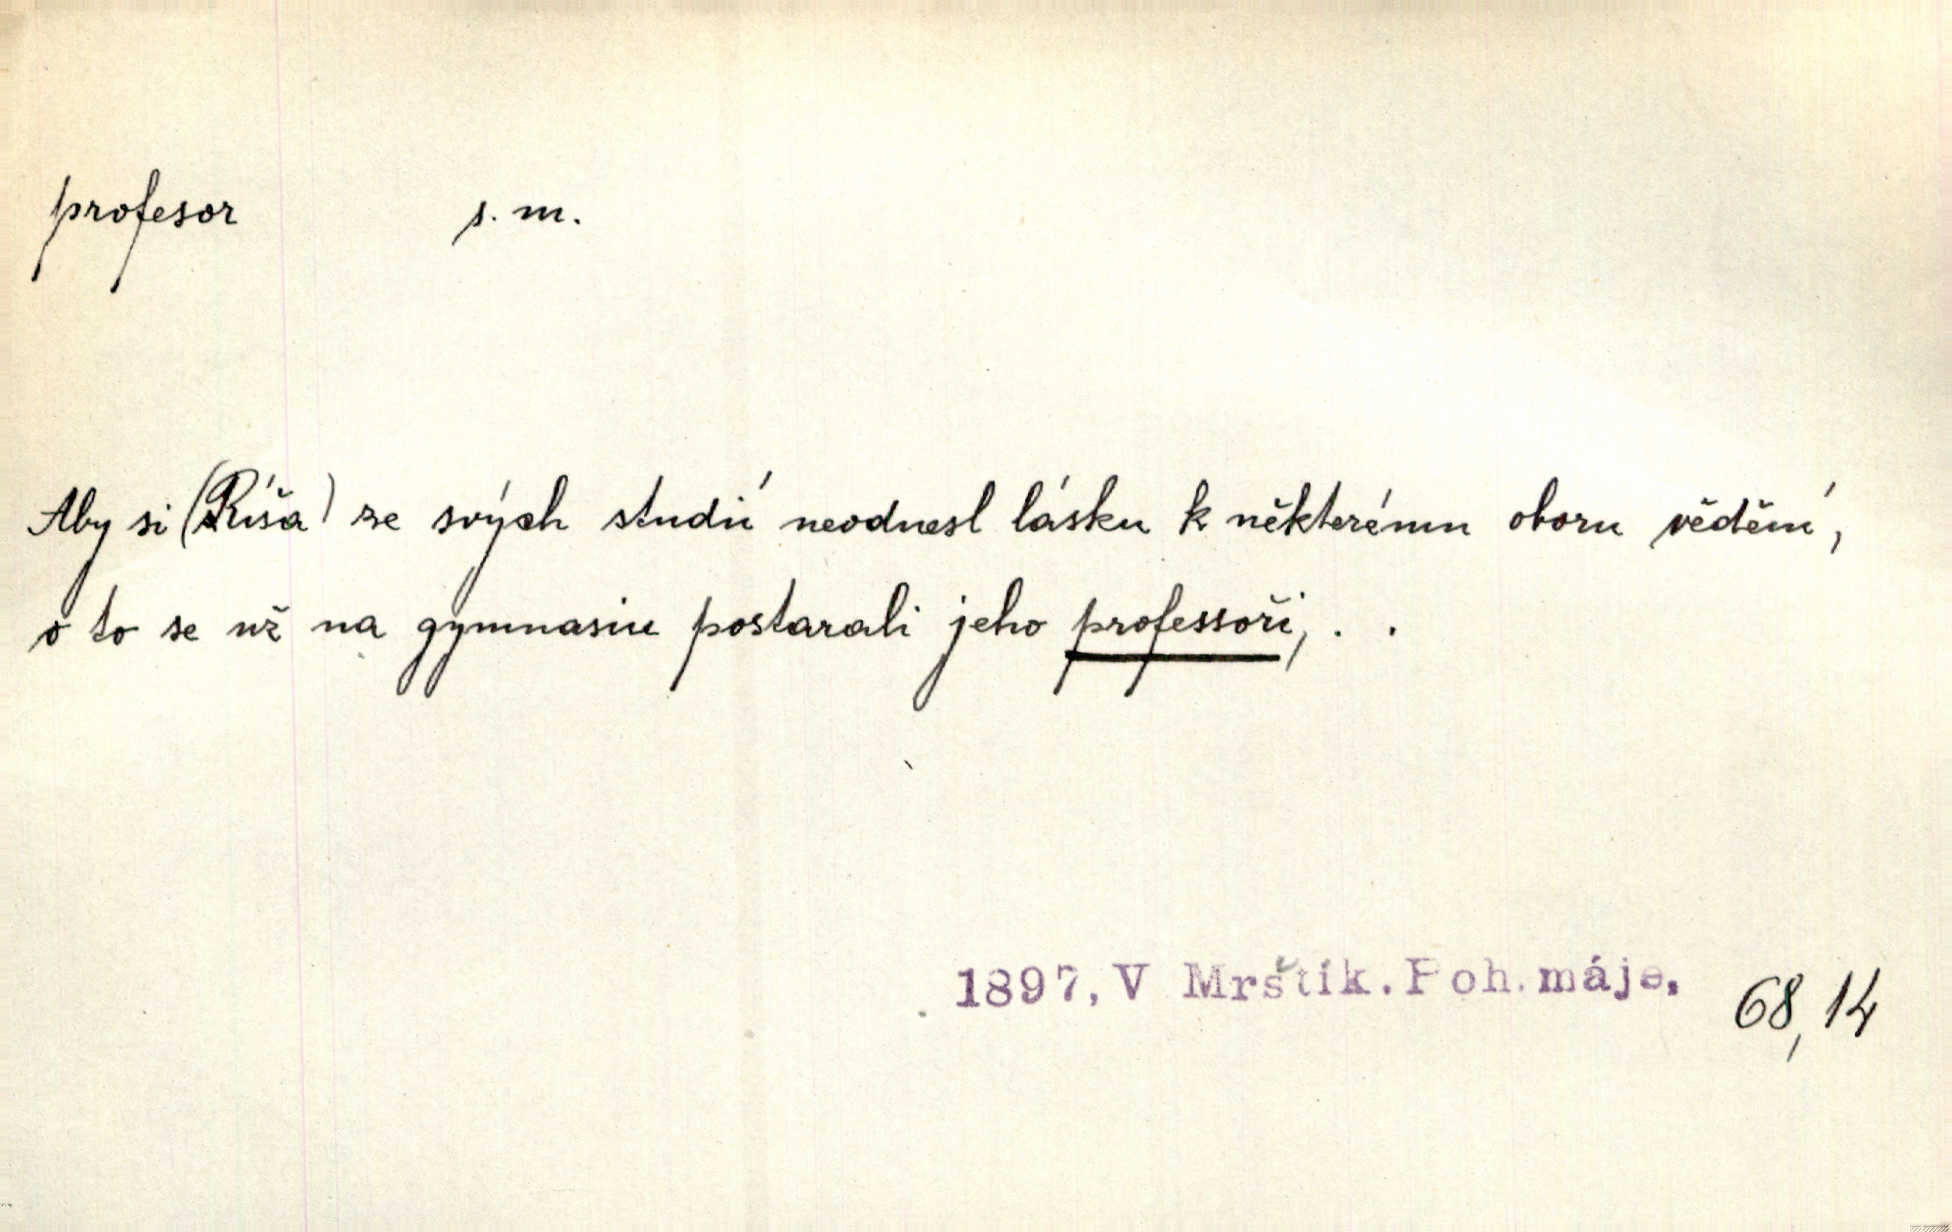 profesor s. m.
Aby si (Ríša) ze svých studií neodnesl lásku k některému oboru vědění,
o to se už na gymnasiu postarali jeho professoři, . .
1897, V Mrštík. Poh. máje. 68, 14